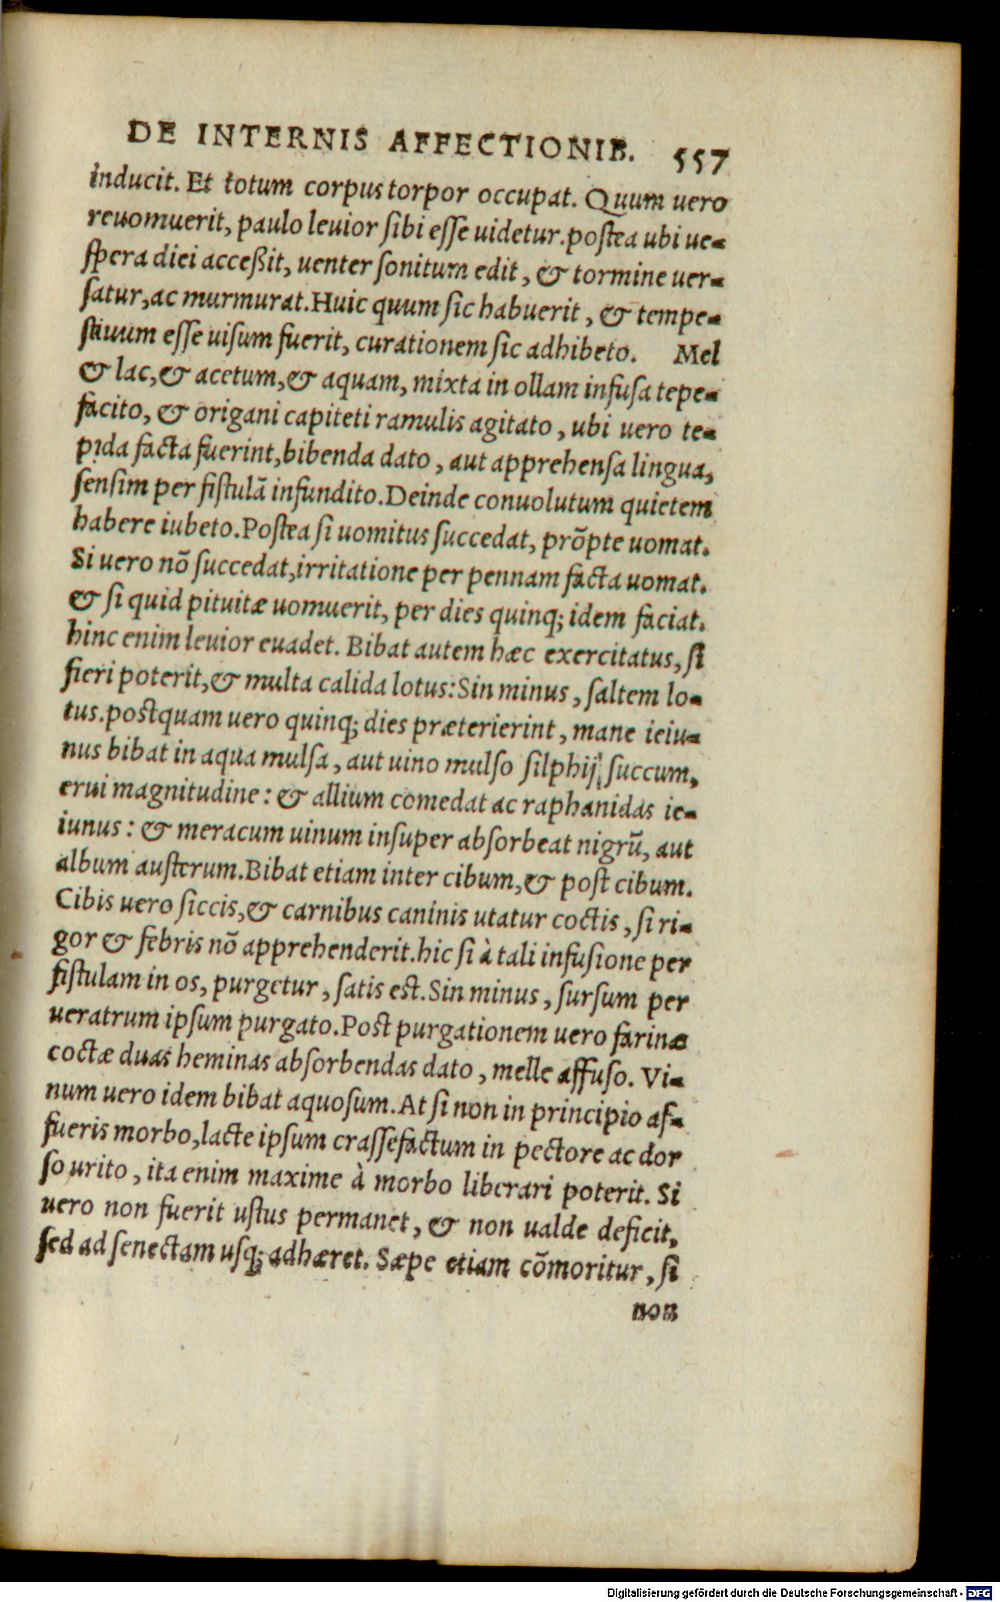 DE INTERNIS AFFECTIONIB. 557
inducit. Et totum corpus torpor occupat. Quum uero
reuomuerit, paulo leuior sibi esse uidetur. postea ubi ue-
spera diei acceßit, uenter sonitum edit, & tormine uer-
satur, ac murmurat. Huic quum sic habuerit, & tempe-
stiuum esse uisum fuerit, curationem sic adhibeto. Mel
& lac, & acetum, & aquam, mixta in ollam infusa tepe-
facito, & origani capiteti ramulis agitato, ubi uero te-
pida facta fuerint, bibenda dato, aut apprehensa lingua,
sensim per fistulã infundito. Deinde conuolutum quietem
habere iubeto. Postea si uomitus succedat, prõpte uomat.
Si uero nõ succedat, irritatione per pennam facta uomat.
& si quid pituitæ uomuerit, per dies quinq; idem faciat.
hinc enim leuior euadet. Bibat autem hæc exercitatus, si
fieri poterit, & multa calida lotus: Sin minus, saltem lo-
tus. postquam uero quinq; dies præterierint, mane ieiu-
nus bibat in aqua mulsa, aut uino mulso silphij succum,
erui magnitudine: & allium comedat ac raphanidas ie-
iunus: & meracum uinum insuper absorbeat nigrũ, aut
album austerum. Bibat etiam inter cibum, & post cibum.
Cibis uero siccis, & carnibus caninis utatur coctis, si ri-
gor & febris nõ apprehenderit. hic si à tali infusione per
fistulam in os, purgetur, satis est. Sin minus, sursum per
ueratrum ipsum purgato. Post purgationem uero farinæ
coctæ duas heminas absorbendas dato, melle affuso. Vi-
num uero idem bibat aquosum. At si non in principio af-
fueris morbo, lacte ipsum crassefactum in pectore ac dor
so urito, ita enim maxime à morbo liberari poterit. Si
uero non fuerit ustus permanet, & non ualde deficit,
sed ad senectam usq; adhæret. Sæpe etiam cõmoritur, si
non
Digitalisierung gefördert durch die Deutsche Forschungsgemeinschaft - DFG